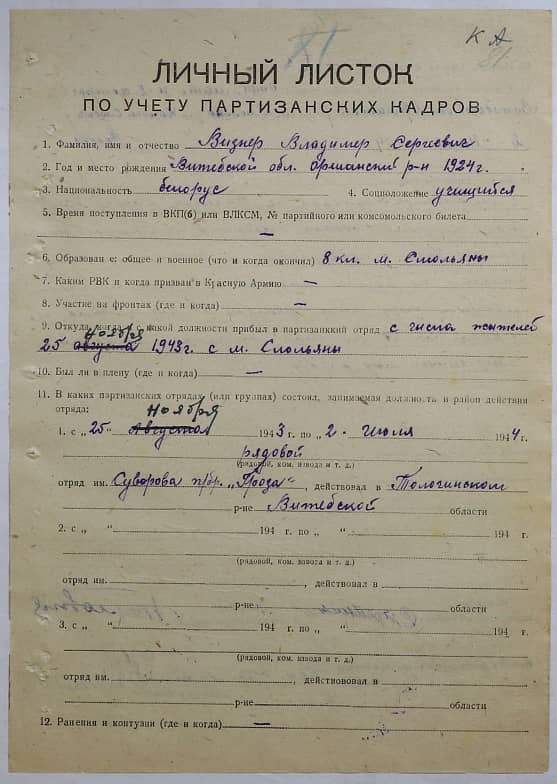 К А
ЛИЧНЫЙ ЛИСТОК
ПО УЧЕТУ ПАРТИЗАНСКИХ КАДРОВ
1. Фамилия, имя и отчество Визнер Владимер Сергеевич
2. Год и место рождения Витебской обл. оршанский р-н 1924 г.
3. Национальность белорус 4. Соцположение учищийся
5. Время поступления в ВКП(б) или ВЛКСМ, № партийного или комсомольского билета
—
6. Образование: общее и военное (что и когда окончил) 8 кл. м. Смольяны
7. Каким РВК и когда призван в Красную Армию —
8. Участие на фронтах (где и когда) —
9. Откуда, когда и с какой должности прибыл в партизанкий отряд с числа жытелей
ноября
25 августа 1943 г. с м. Смольяны
10. Был ли в плену (где и когда) —
11. В каких партизанских отрядах (или группах) состоял, занимаемая должность и район действия
отряда:
ноября
1. с „25" Августа 1943 г. по „2" Июля 1944 г.
рядовой
(рядовой, ком. взвода и т. д.)
отряд им. Суворова п/бр. „Гроза", действовал в Толочинском
р-не Витебской области
2. с „ " 194 г. по „ " 194 г.
(рядовой, ком. взвода и т. д.)
отряд им. , действовал в
р-не области
3. с „ " 194 г. по „ " 194 г.
(рядовой, ком. взвода и т. д.)
отряд им. , действововал в
р-не области
12. Ранения и контузии (где и когда) —